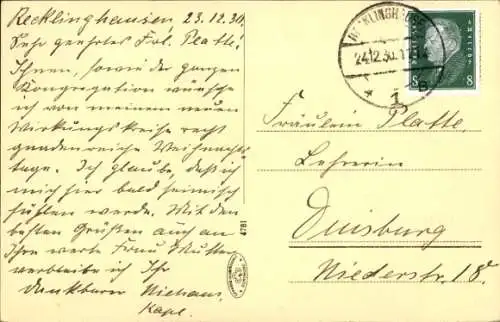 Recklinghausen, 23.12.30.
Sehr geehrtes Frl. Platte!
Ihnen, sowie der ganzen
Kongregation wünsche
ich von meinem neuen
Wirkungskreise recht
gnadenreiche Weihnachts
tage. Ich glaube, daß ich
mich hier bald heimisch
fühlen werde. Mit den
besten Grüßen auch an
Ihre werte Frau Mutter
verbleibe ich Ihr
dankbarer Niehaus,
Kapl.
4781
RECKLINGHAUSEN
24.12.30.
1
8 8
Fräulein Platte,
Lehrerin
Duisburg
Niederstr. 18a.